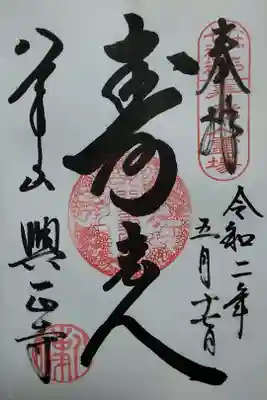 奉拝
令和二年
五月十七日
寿老人
八事山
興正寺